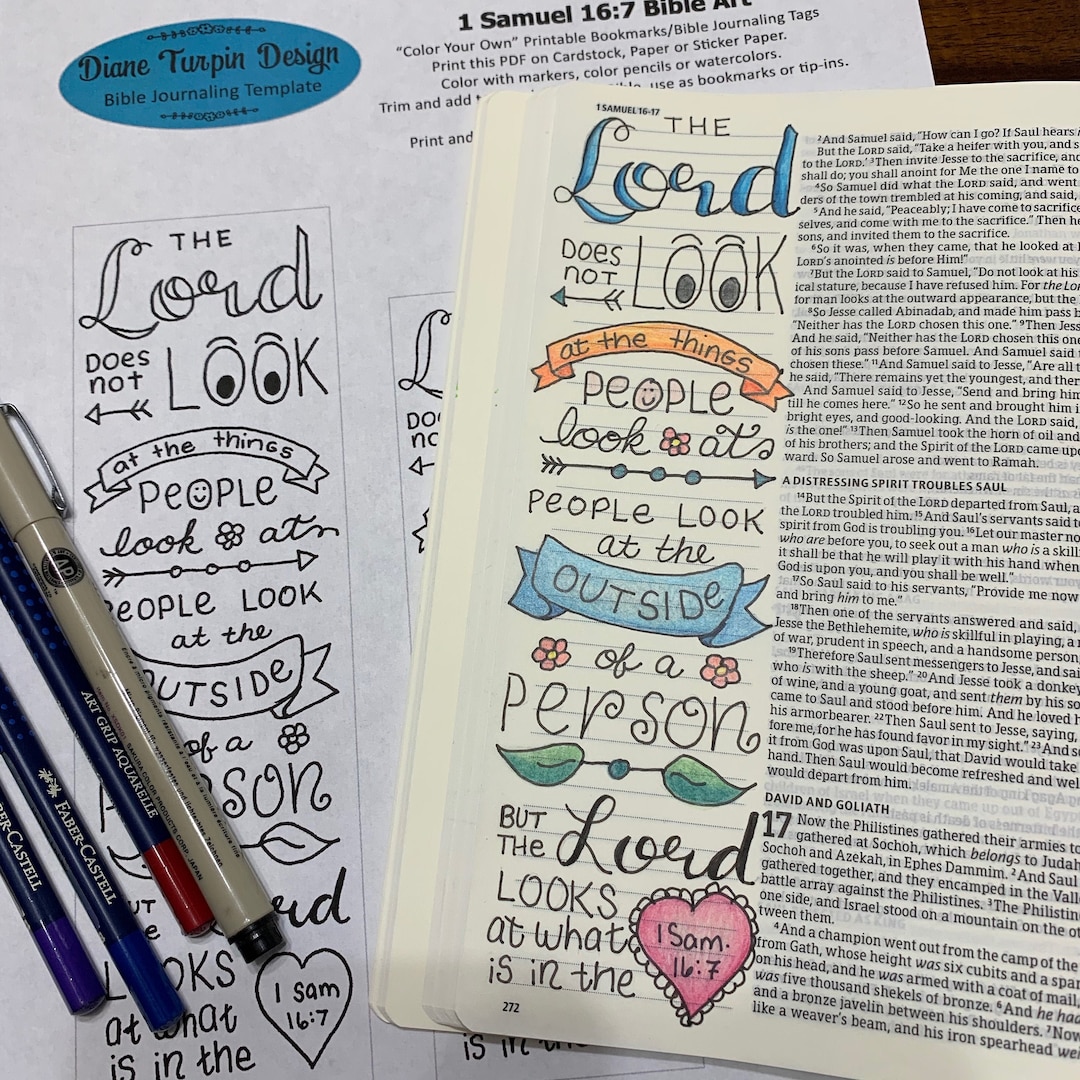 1 Samuel 16:7 Bible Art
Diane Turpin Design
Bible Journaling Template
"Color Your Own" Printable Bookmarks/Bible Journaling Tags
Print this PDF on Cardstock, Paper or Sticker Paper.
Color with markers, color pencils or watercolors.
Trim and add use as bookmarks or tip-ins.
Print and
THE
Lord
DOES
not LOOK
at the things
PEOPLE
look at
PEOPLE LOOK
at the
OUTSIDE
of a
SON
rd
LOOKS
at what
is in the
1 Sam
16:7
DO
is in the
ART GRIP AQUARELLE
FABER-CASTELL
ER-CASTELL
SAKURA COLOR PRODUCTS CORP. JAPAN
1 SAMUEL 16-17
THE
Lord
DOES
not LOOK
at the things
PEOPLE
look at
PEOPLE LOOK
at the
OUTSIDE
of a
PERSON
BUT
THE Lord
LOOKS
at what
is in the
1 Sam.
16:7
272
2And Samuel said, "How can I go? If Saul hears
But the LORD said, "Take a heifer with you, and s
to the LORD.' 3Then invite Jesse to the sacrifice, and
shall do; you shall anoint for Me the one I name to
4So Samuel did what the LORD said, and went
ders of the town trembled at his coming, and said,
5And he said, "Peaceably; I have come to sacrifice
selves, and come with me to the sacrifice." Then he
sons, and invited them to the sacrifice.
6So it was, when they came, that he looked at
LORD's anointed is before Him!"
7But the LORD said to Samuel, "Do not look at his
ical stature, because I have refused him. For the LOR
for man looks at the outward appearance, but the
8So Jesse called Abinadab, and made him pass b
"Neither has the LORD chosen this one." 9Then Jess
And he said, "Neither has the LORD chosen this one
of his sons pass before Samuel. And Samuel said
chosen these." 11And Samuel said to Jesse, "Are all t
he said, "There remains yet the youngest, and ther
And Samuel said to Jesse, "Send and bring him
till he comes here." 12So he sent and brought him i
bright eyes, and good-looking. And the LORD said,
is the one!" 13Then Samuel took the horn of oil and
of his brothers; and the Spirit of the LORD came upo
ward. So Samuel arose and went to Ramah.
A DISTRESSING SPIRIT TROUBLES SAUL
14But the Spirit of the LORD departed from Saul, a
the LORD troubled him. 15And Saul's servants said to
spirit from God is troubling you. 16Let our master no
who are before you, to seek out a man who is a skill
it shall be that he will play it with his hand when
God is upon you, and you shall be well."
17So Saul said to his servants, "Provide me now
and bring him to me."
18Then one of the servants answered and said,
Jesse the Bethlehemite, who is skillful in playing, a
of war, prudent in speech, and a handsome person
19Therefore Saul sent messengers to Jesse, and sai
who is with the sheep." 20And Jesse took a donkey
of wine, and a young goat, and sent them by his so
came to Saul and stood before him. And he loved h
his armorbearer. 22Then Saul sent to Jesse, saying,
fore me, for he has found favor in my sight." 23And so
it from God was upon Saul, that David would take
hand. Then Saul would become refreshed and wel
would depart from him.
DAVID AND GOLIATH
17 Now the Philistines gathered their armies to
gathered at Sochoh, which belongs to Judah
Sochoh and Azekah, in Ephes Dammim. 2And Saul
gathered together, and they encamped in the Vall
battle array against the Philistines. 3The Philistin
one side, and Israel stood on a mountain on the ot
tween them.
4And a champion went out from the camp of the
from Gath, whose height was six cubits and a spa
on his head, and he was armed with a coat of mail
was five thousand shekels of bronze. 6And he had
and a bronze javelin between his shoulders. 7Now
like a weaver's beam, and his iron spearhead wei